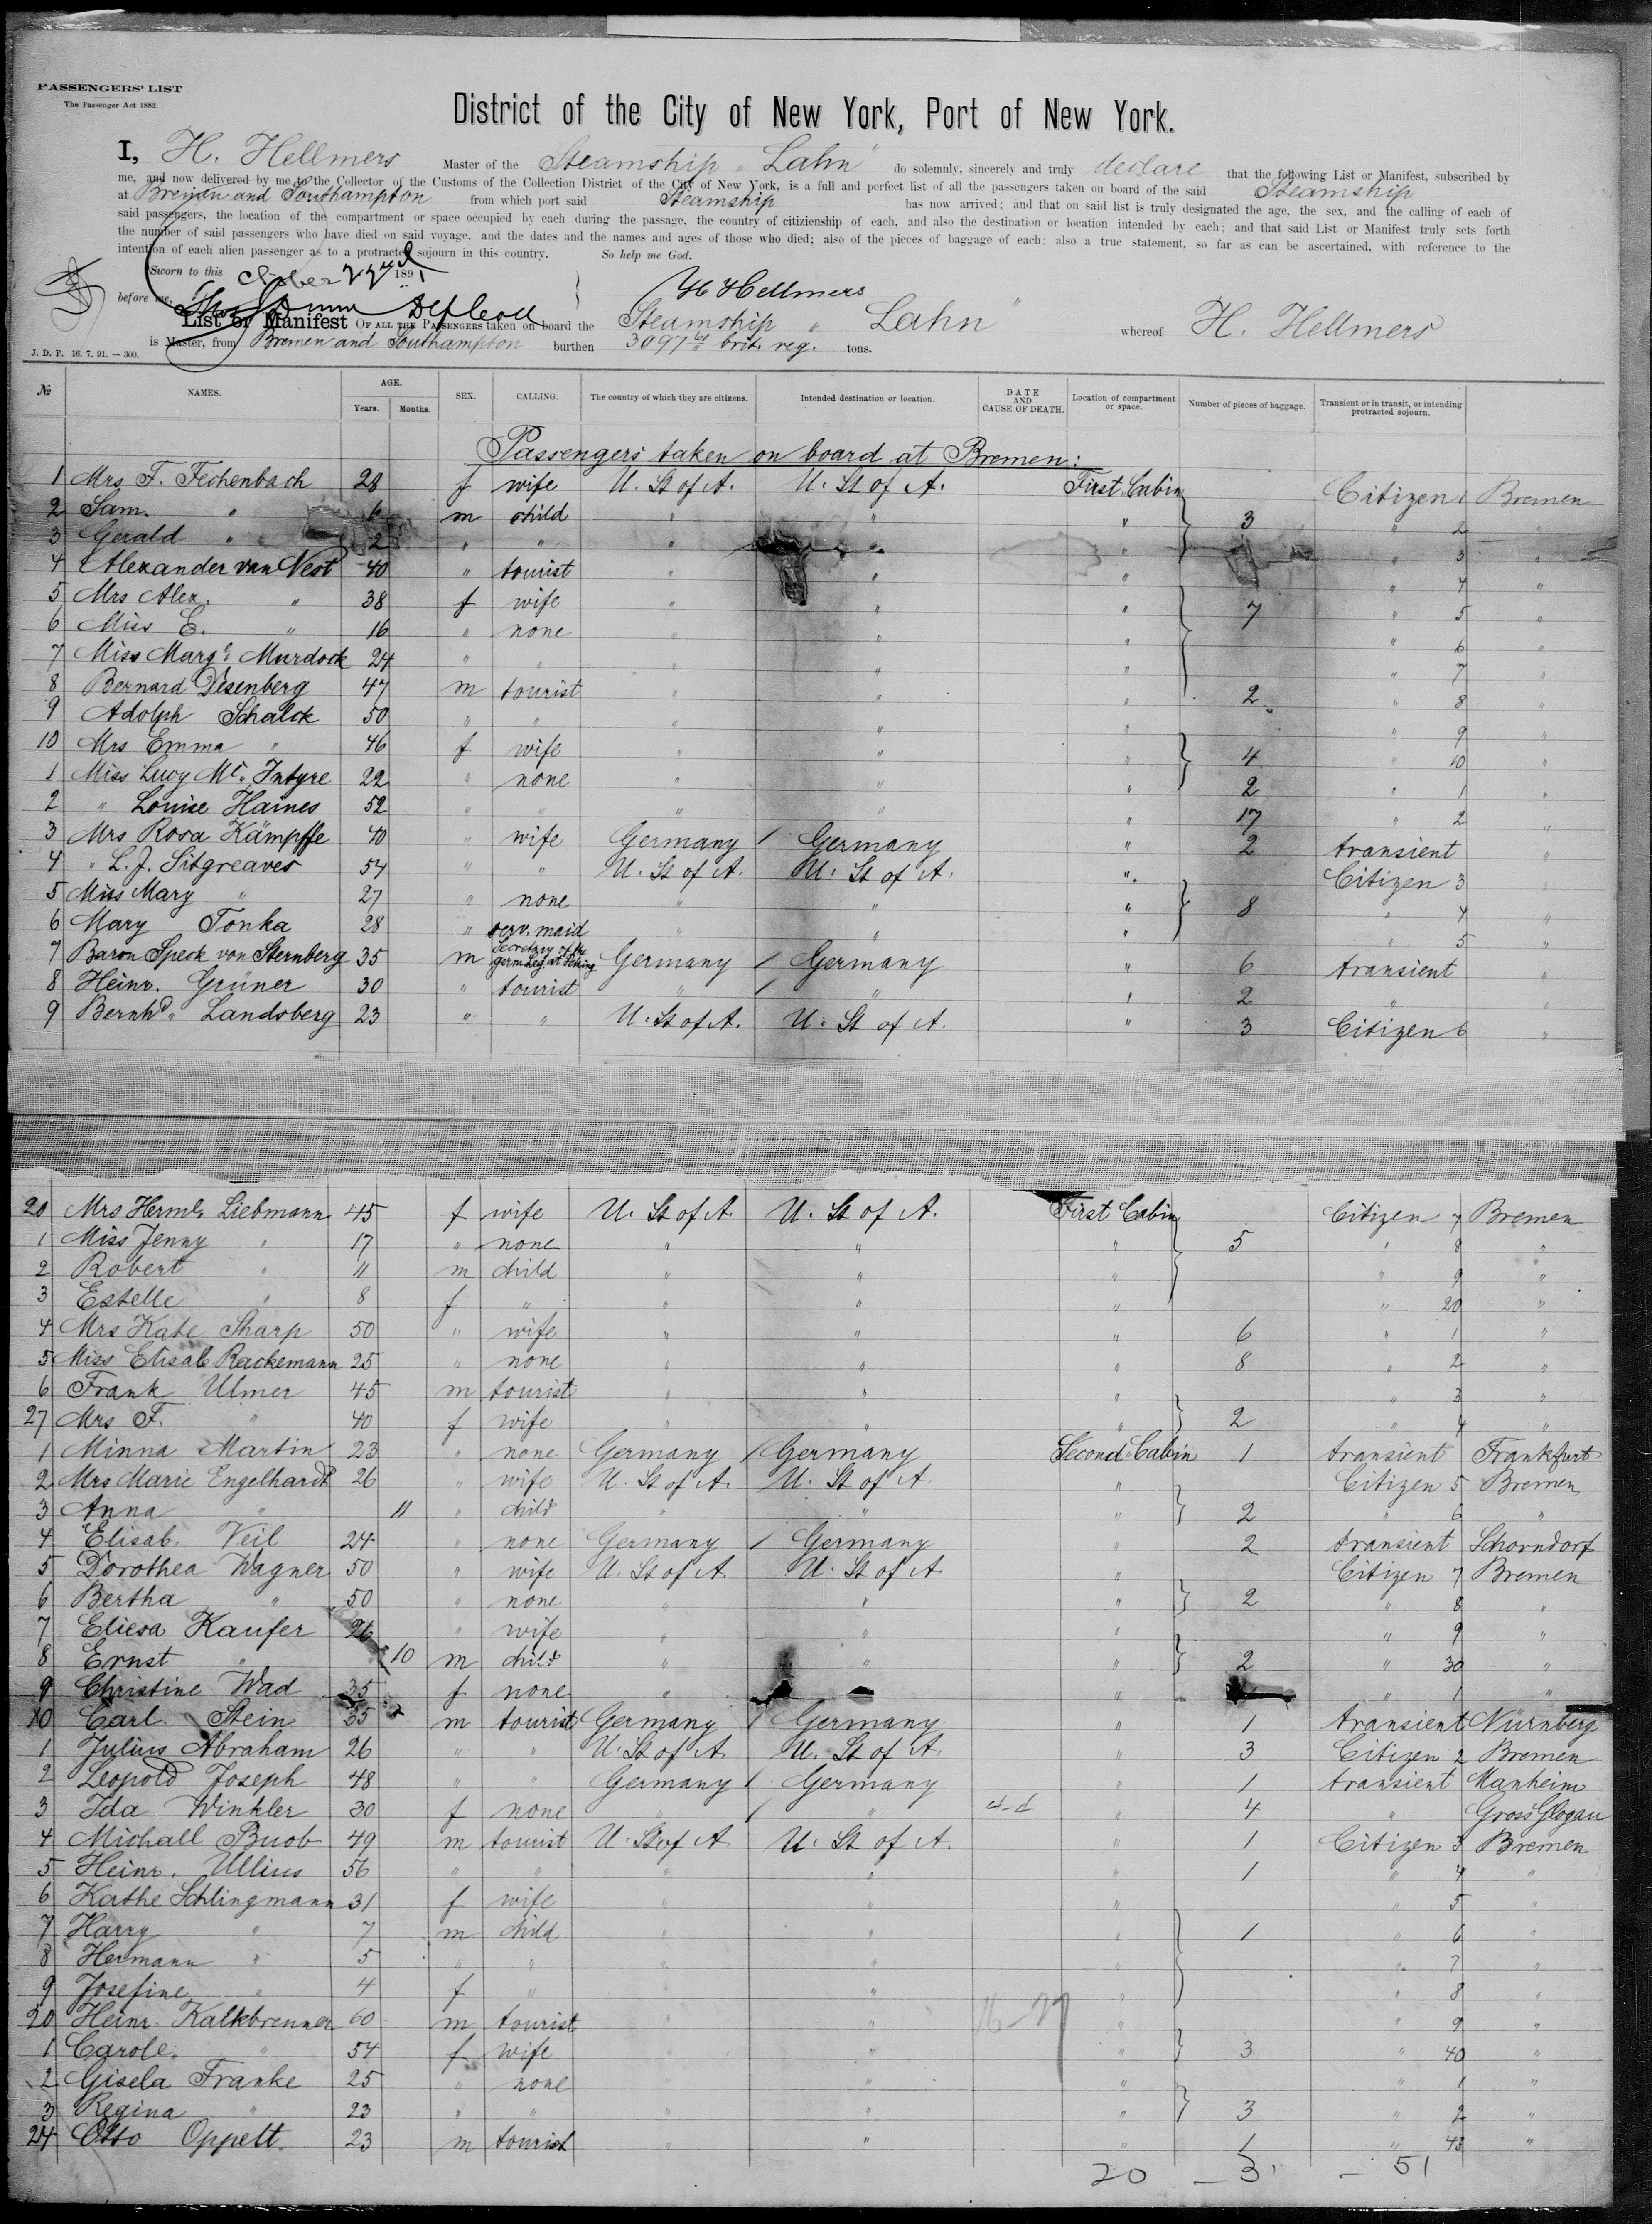 PASSENGERS' LIST
The Passenger Act 1882.
District of the City of New York, Port of New York.
I, H. Hellmers Master of the Steamship „ Lahn " do solemnly, sincerely and truly declare that the following List or Manifest, subscribed by
me, and now delivered by me to the Collector of the Customs of the Collection District of the City of New York, is a full and perfect list of all the passengers taken on board of the said Steamship
at Bremen and Southampton from which port said Steamship has now arrived; and that on said list is truly designated the age, the sex, and the calling of each of
said passengers, the location of the compartment or space occupied by each during the passage, the country of citizienship of each, and also the destination or location intended by each; and that said List or Manifest truly sets forth
the number of said passengers who have died on said voyage, and the dates and the names and ages of those who died; also of the pieces of baggage of each; also a true statement, so far as can be ascertained, with reference to the
intention of each alien passenger as to a protracted sojourn in this country. So help me God.
Sworn to this 22nd 1891
before me,
H Hellmers
List or Manifest OF ALL THE PASSENGERS taken on board the Steamship „ Lahn " whereof H. Hellmers
is Master, from Bremen and Southampton burthen 3097 brit. reg. tons.
J. D. P. 16. 7. 91. — 300.
№ NAMES. AGE. Years. Months. SEX. CALLING. The country of which they are citizens. Intended destination or location. DATE AND CAUSE OF DEATH. Location of compartment or space. Number of pieces of baggage. Transient or in transit, or intending protracted sojourn.
Passengers taken on board at Bremen:
1 Mrs F. Fechenbach 28 f wife U. St of A. U. St of A. First Cabin Citizen 1 Bremen
2 Sam. " 6 m child " " " 3 " 2 "
3 Gerald " 2 " " " " " " 3 "
4 Alexander van Nest 40 " tourist " " " " 4 "
5 Mrs Alex. " 38 f wife " " " 7 " 5 "
6 Miss E. " 16 " none " " " " 6 "
7 Miss Marg. Murdock 24 " " " " " " 7 "
8 Bernard Desenberg 47 m tourist " " " 2 " 8 "
9 Adolph Schalck 50 " " " " " " 9 "
10 Mrs Emma " 46 f wife " " " 4 " 10 "
1 Miss Lucy Mc. Intyre 22 " none " " " 2 " 1 "
2 " Louise Haines 52 " " " " " 17 " 2 "
3 Mrs Rosa Kämpffe 40 " wife Germany / Germany " 2 transient "
4 " L. J. Sitgreaves 54 " " U. St of A. U. St of A. " Citizen 3 "
5 Miss Mary " 27 " none " " " 8 " 4 "
6 Mary Tonka 28 " serv. maid " " " " 5 "
7 Baron Speck von Sternberg 35 m Secretary of the germ Leg. at Peking Germany / Germany " 6 transient "
8 Heinr. Grüner 30 " tourist " / " " 2 " "
9 Bernhd. Landsberg 23 " " U. St of A. U. St of A. " 3 Citizen 6 "
20 Mrs Herml. Liebmann 45 f wife U. St of A U. St of A. First Cabin Citizen 7 Bremen
1 Miss Jenny " 17 " none " " " 5 " 8 "
2 Robert " 11 m child " " " " 9 "
3 Estelle " 8 f " " " " " 20 "
4 Mrs Kate Sharp 50 " wife " " " 6 " 1 "
5 Miss Elisab Rackemann 25 " none " " " 8 " 2 "
6 Frank Ulmer 45 m tourist " " " " 3 "
27 Mrs F. " 40 f wife " " " 2 " 4 "
1 Minna Martin 23 " none Germany / Germany Second Cabin 1 transient Frankfurt
2 Mrs Marie Engelhardt 26 " wife U. St of A. U. St of A. " Citizen 5 Bremen
3 Anna " 11 " child " " " 2 " 6 "
4 Elisab. Veil 24 " none Germany / Germany " 2 transient Schorndorf
5 Dorothea Wagner 50 " wife U. St of A. U. St of A. " Citizen 7 Bremen
6 Bertha " 50 " none " " " 2 " 8 "
7 Eliesa Kaufer 26 " wife " " " " 9 "
8 Ernst " 10 m child " " " 2 " 30 "
9 Christine Wad 35 f none " " " " 1 "
10 Carl Stein 35 m tourist Germany / Germany " 1 transient Nürnberg
1 Julius Abraham 26 " " U. St of A. U. St of A. " 3 Citizen 2 Bremen
2 Leopold Joseph 48 " " Germany / Germany " 1 transient Manheim
3 Ida Winkler 30 f none " / " " 4 " Gross Glogau
4 Michall Buob 49 m tourist U. St of A U. St of A. " 1 Citizen 3 Bremen
5 Heinr. Ullius 56 " " " " " 1 " 4 "
6 Kathe Schlingmann 31 f wife " " " " 5 "
7 Harry " 7 m child " " " 1 " 6 "
8 Hermann " 5 " " " " " " 7 "
9 Josefine " 4 f " " " " " 8 "
20 Heinr. Kalkbrenner 60 m tourist " " " " 9 "
1 Carole. " 54 f wife " " " 3 " 40 "
2 Gisela Franke 25 " none " " " " 1 "
3 Regina " 23 " " " " " 3 " 2 "
24 Otto Oppelt 23 m tourist " " " 1 " 43 "
20 – 3 – 51